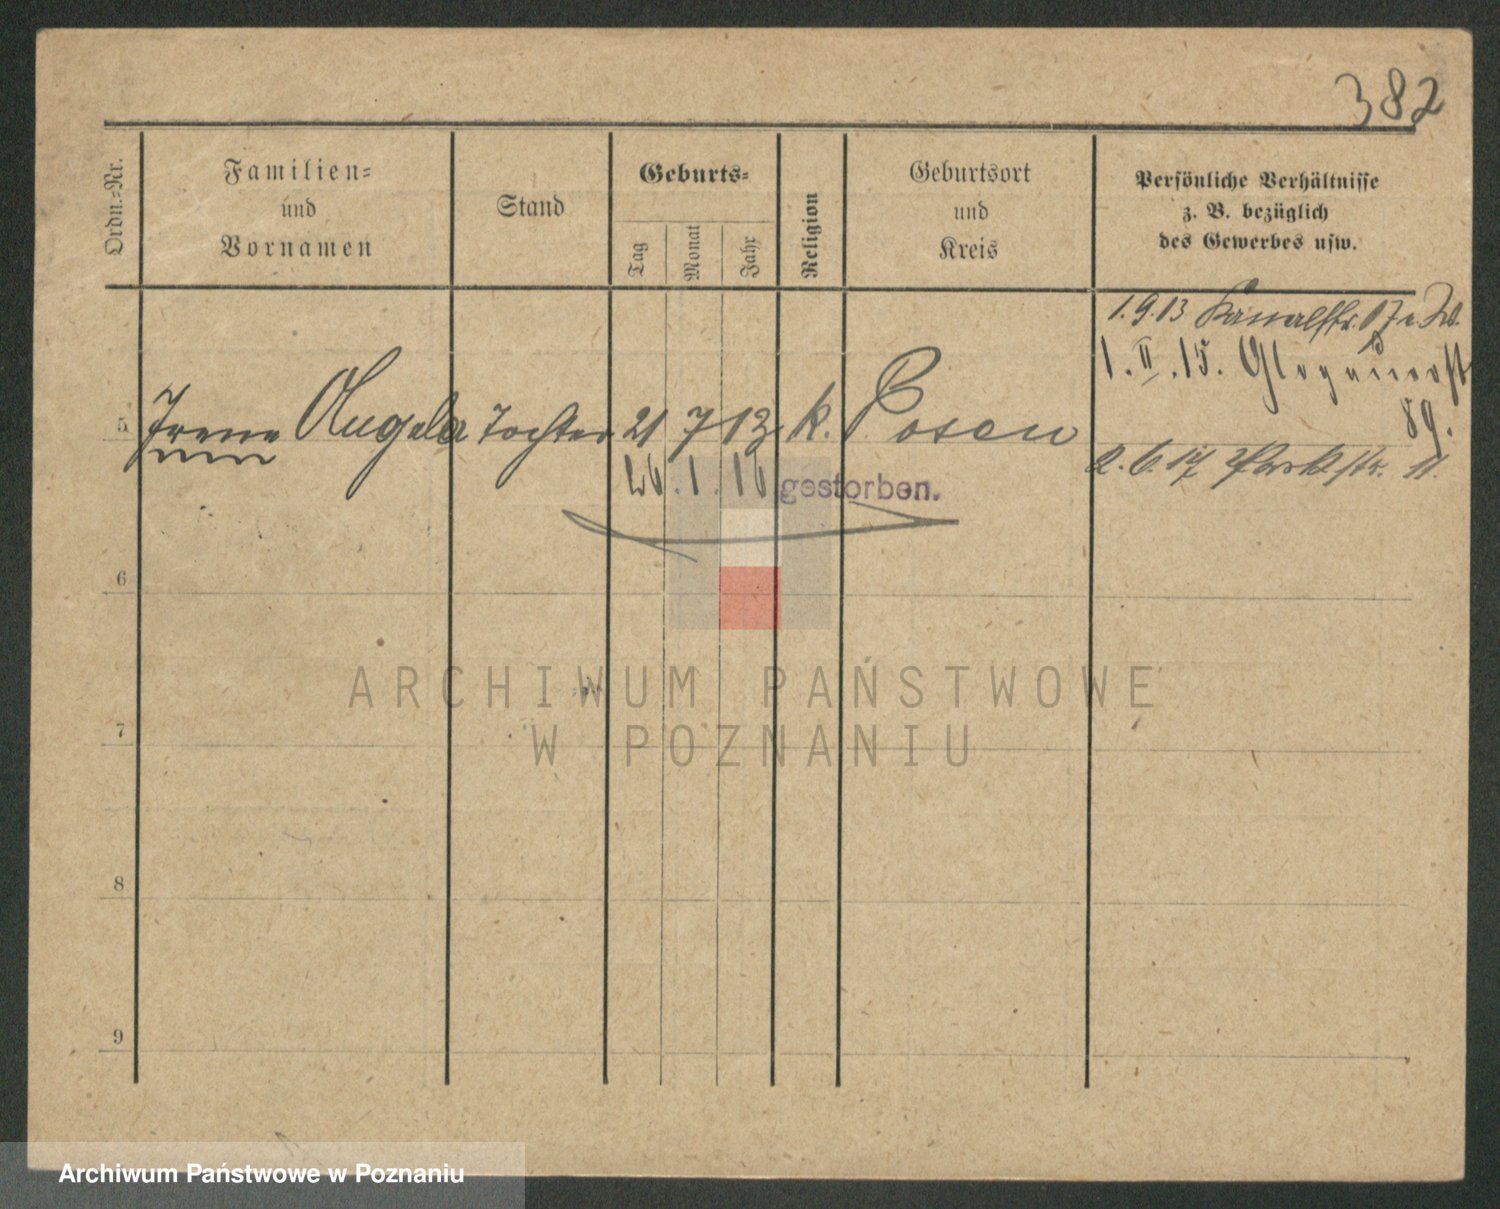 382
Ordn.-Nr.
Familien-
und
Vornamen
Stand
Geburts-
Tag
Monat
Jahr
Religion
Geburtsort
und
Kreis
Persönliche Verhältnisse
z. B. bezüglich
des Gewerbes usw.
1.9.13 Kanalstr. 17
1.II.15. Glogauerst
89.
5 Irene Angela Tochter 21 7 13 k. Posen
2.6.17 Parkstr. 11.
26.1.16 gestorben.
6
7
8
9
ARCHIWUM PAŃSTWOWE
W POZNANIU
Archiwum Państwowe w Poznaniu